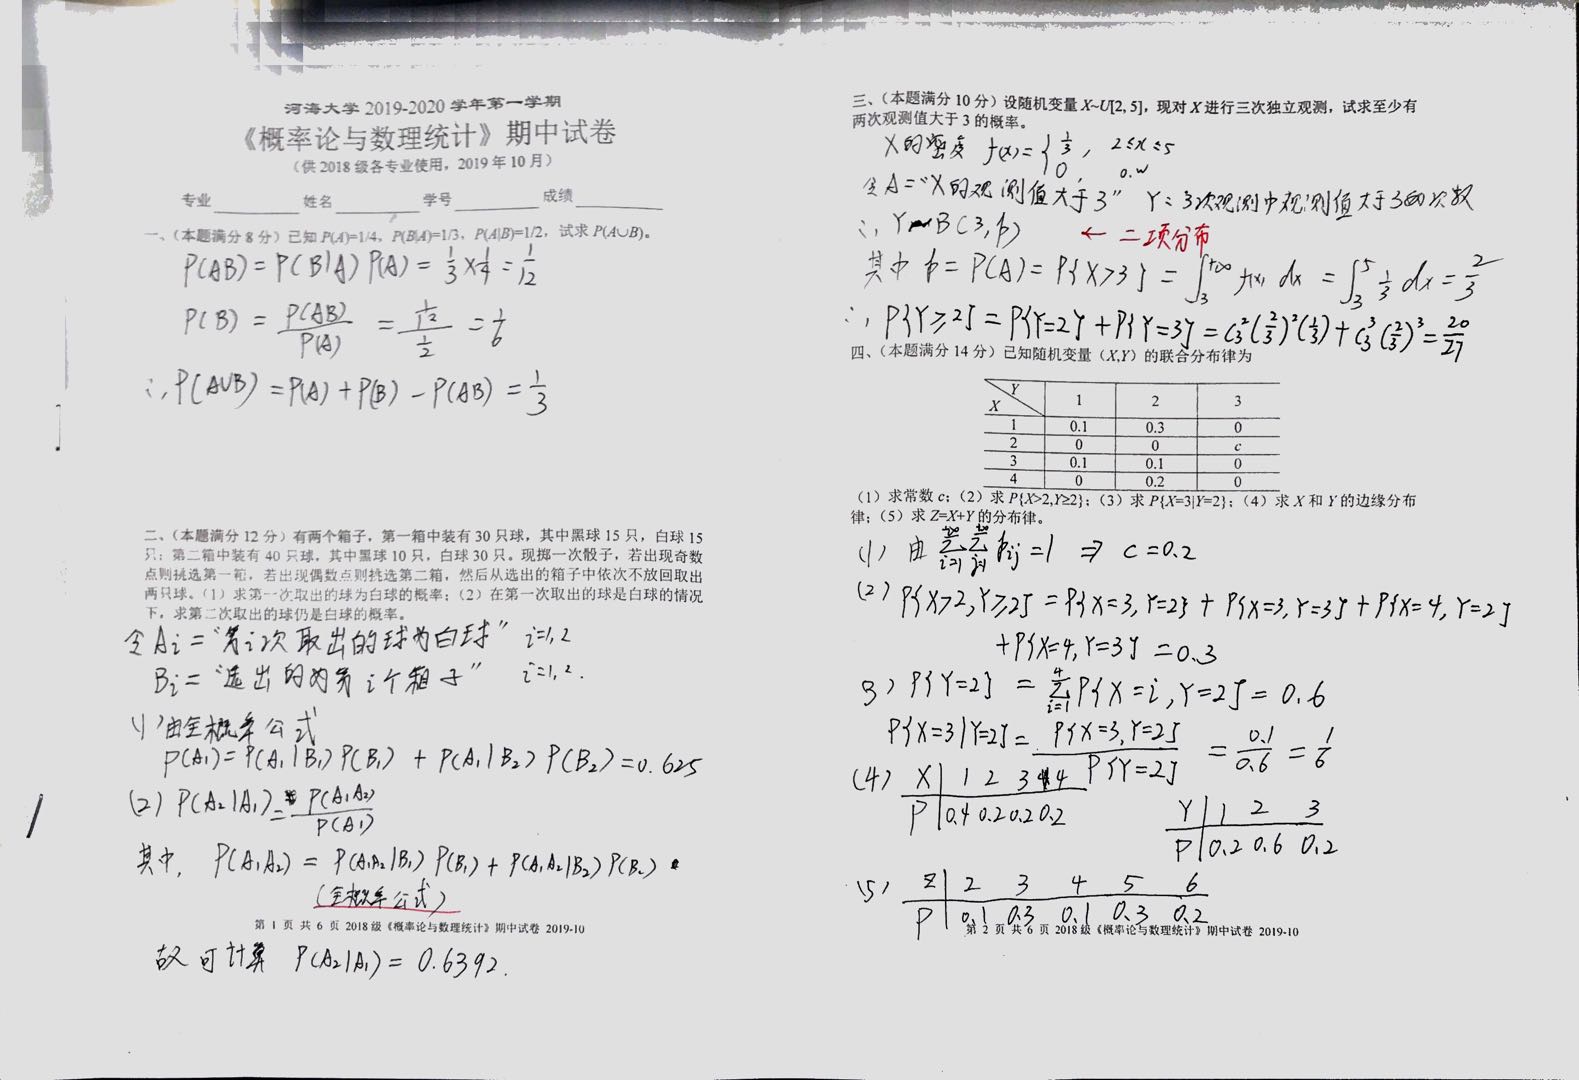 河海大学 2019-2020 学年第一学期
《概率论与数理统计》期中试卷
（供 2018 级各专业使用，2019 年 10 月）
专业 姓名 学号 成绩
一、（本题满分 8 分）已知 P(A)=1/4，P(B|A)=1/3，P(A|B)=1/2，试求 P(A∪B)。
P(AB) = P(B|A) P(A) = 1/3 × 1/4 = 1/12
P(B) = P(AB)/P(A) = (1/12)/(1/2) = 1/6
∴ P(A∪B) = P(A) + P(B) - P(AB) = 1/3
二、（本题满分 12 分）有两个箱子，第一箱中装有 30 只球，其中黑球 15 只，白球 15
只；第二箱中装有 40 只球，其中黑球 10 只，白球 30 只。现掷一次骰子，若出现奇数
点则挑选第一箱，若出现偶数点则挑选第二箱，然后从选出的箱子中依次不放回取出
两只球。（1）求第一次取出的球为白球的概率；（2）在第一次取出的球是白球的情况
下，求第二次取出的球仍是白球的概率。
令 Ai = "第i次取出的球为白球" i=1,2
Bi = "选出的为第i个箱子" i=1,2.
(1) 由全概率公式
P(A₁) = P(A₁|B₁) P(B₁) + P(A₁|B₂) P(B₂) = 0.625
(2) P(A₂|A₁) = P(A₁A₂)/P(A₁)
其中, P(A₁A₂) = P(A₁A₂|B₁) P(B₁) + P(A₁A₂|B₂) P(B₂)
(全概率公式)
第 1 页 共 6 页 2018 级《概率论与数理统计》期中试卷 2019-10
故可计算 P(A₂|A₁) = 0.6392.
三、（本题满分 10 分）设随机变量 X~U[2, 5]，现对 X 进行三次独立观测，试求至少有
两次观测值大于 3 的概率。
X的密度 f(x) = { 1/3, 2≤x≤5
0, o.w
令A="X的观测值大于3" Y: 3次观测中观测值大于3的次数
∴ Y~B(3,p) ← 二项分布
其中 p = P(A) = P{X>3} = ∫₃^{+∞} f(x) dx = ∫₃⁵ 1/3 dx = 2/3
∴ P{Y≥2} = P{Y=2} + P{Y=3} = C₃²(2/3)²(1/3) + C₃³(2/3)³ = 20/27
四、（本题满分 14 分）已知随机变量（X,Y）的联合分布律为
Y
X 1 2 3
1 0.1 0.3 0
2 0 0 c
3 0.1 0.1 0
4 0 0.2 0
（1）求常数 c；（2）求 P{X>2,Y≥2}；（3）求 P{X=3|Y=2}；（4）求 X 和 Y 的边缘分布
律；（5）求 Z=X+Y 的分布律。
(1) 由 ∑_{i=1}^{+∞} ∑_{j=1}^{+∞} p_ij = 1 ⇒ c = 0.2
(2) P{X>2, Y≥2} = P{X=3, Y=2} + P{X=3, Y=3} + P{X=4, Y=2}
+ P{X=4, Y=3} = 0.3
3) P{Y=2} = ∑_{i=1}^{4} P{X=i, Y=2} = 0.6
P{X=3|Y=2} = P{X=3, Y=2}/P{Y=2} = 0.1/0.6 = 1/6
(4) X 1 2 3 4
P 0.4 0.2 0.2 0.2
Y 1 2 3
P 0.2 0.6 0.2
(5) Z 2 3 4 5 6
P 0.1 0.3 0.1 0.3 0.2
第 2 页 共 6 页 2018 级《概率论与数理统计》期中试卷 2019-10